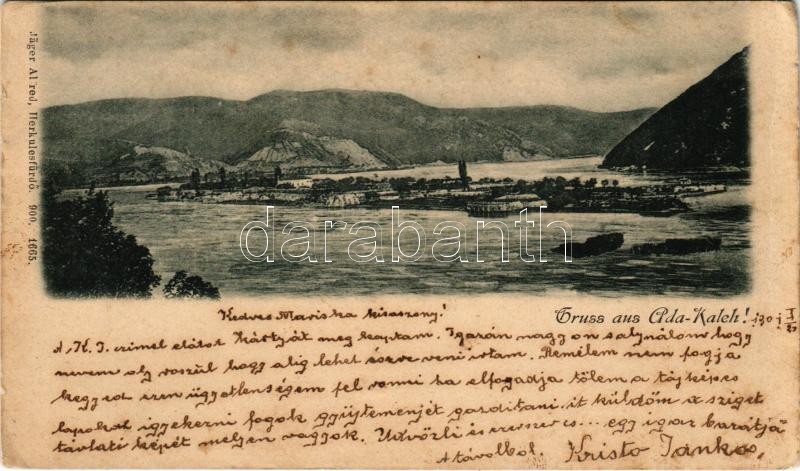 Jäger Alfred, Herkulesfürdő. 900. 1665.
darabanth
Gruss aus Ada-Kaleh!
Kedves Mariska kisasszony!
A. K. J. czimel elátot kártyát meg kaptam. Igazán nagyon salynálom hogy
nevem oly roszul hogy alig lehet észre venni irtam. Remélem nem fogja
kegyed ezen ügyetlenségem fel venni ha elfogadja tölem a tájképes
lapokat igyekezni fogok gyüjteményét gazditani itt küldöm a sziget
távlati képét melyen vagyok. Üdvözli és ... egy igaz barátja
A távolbol. Kristo Janko,